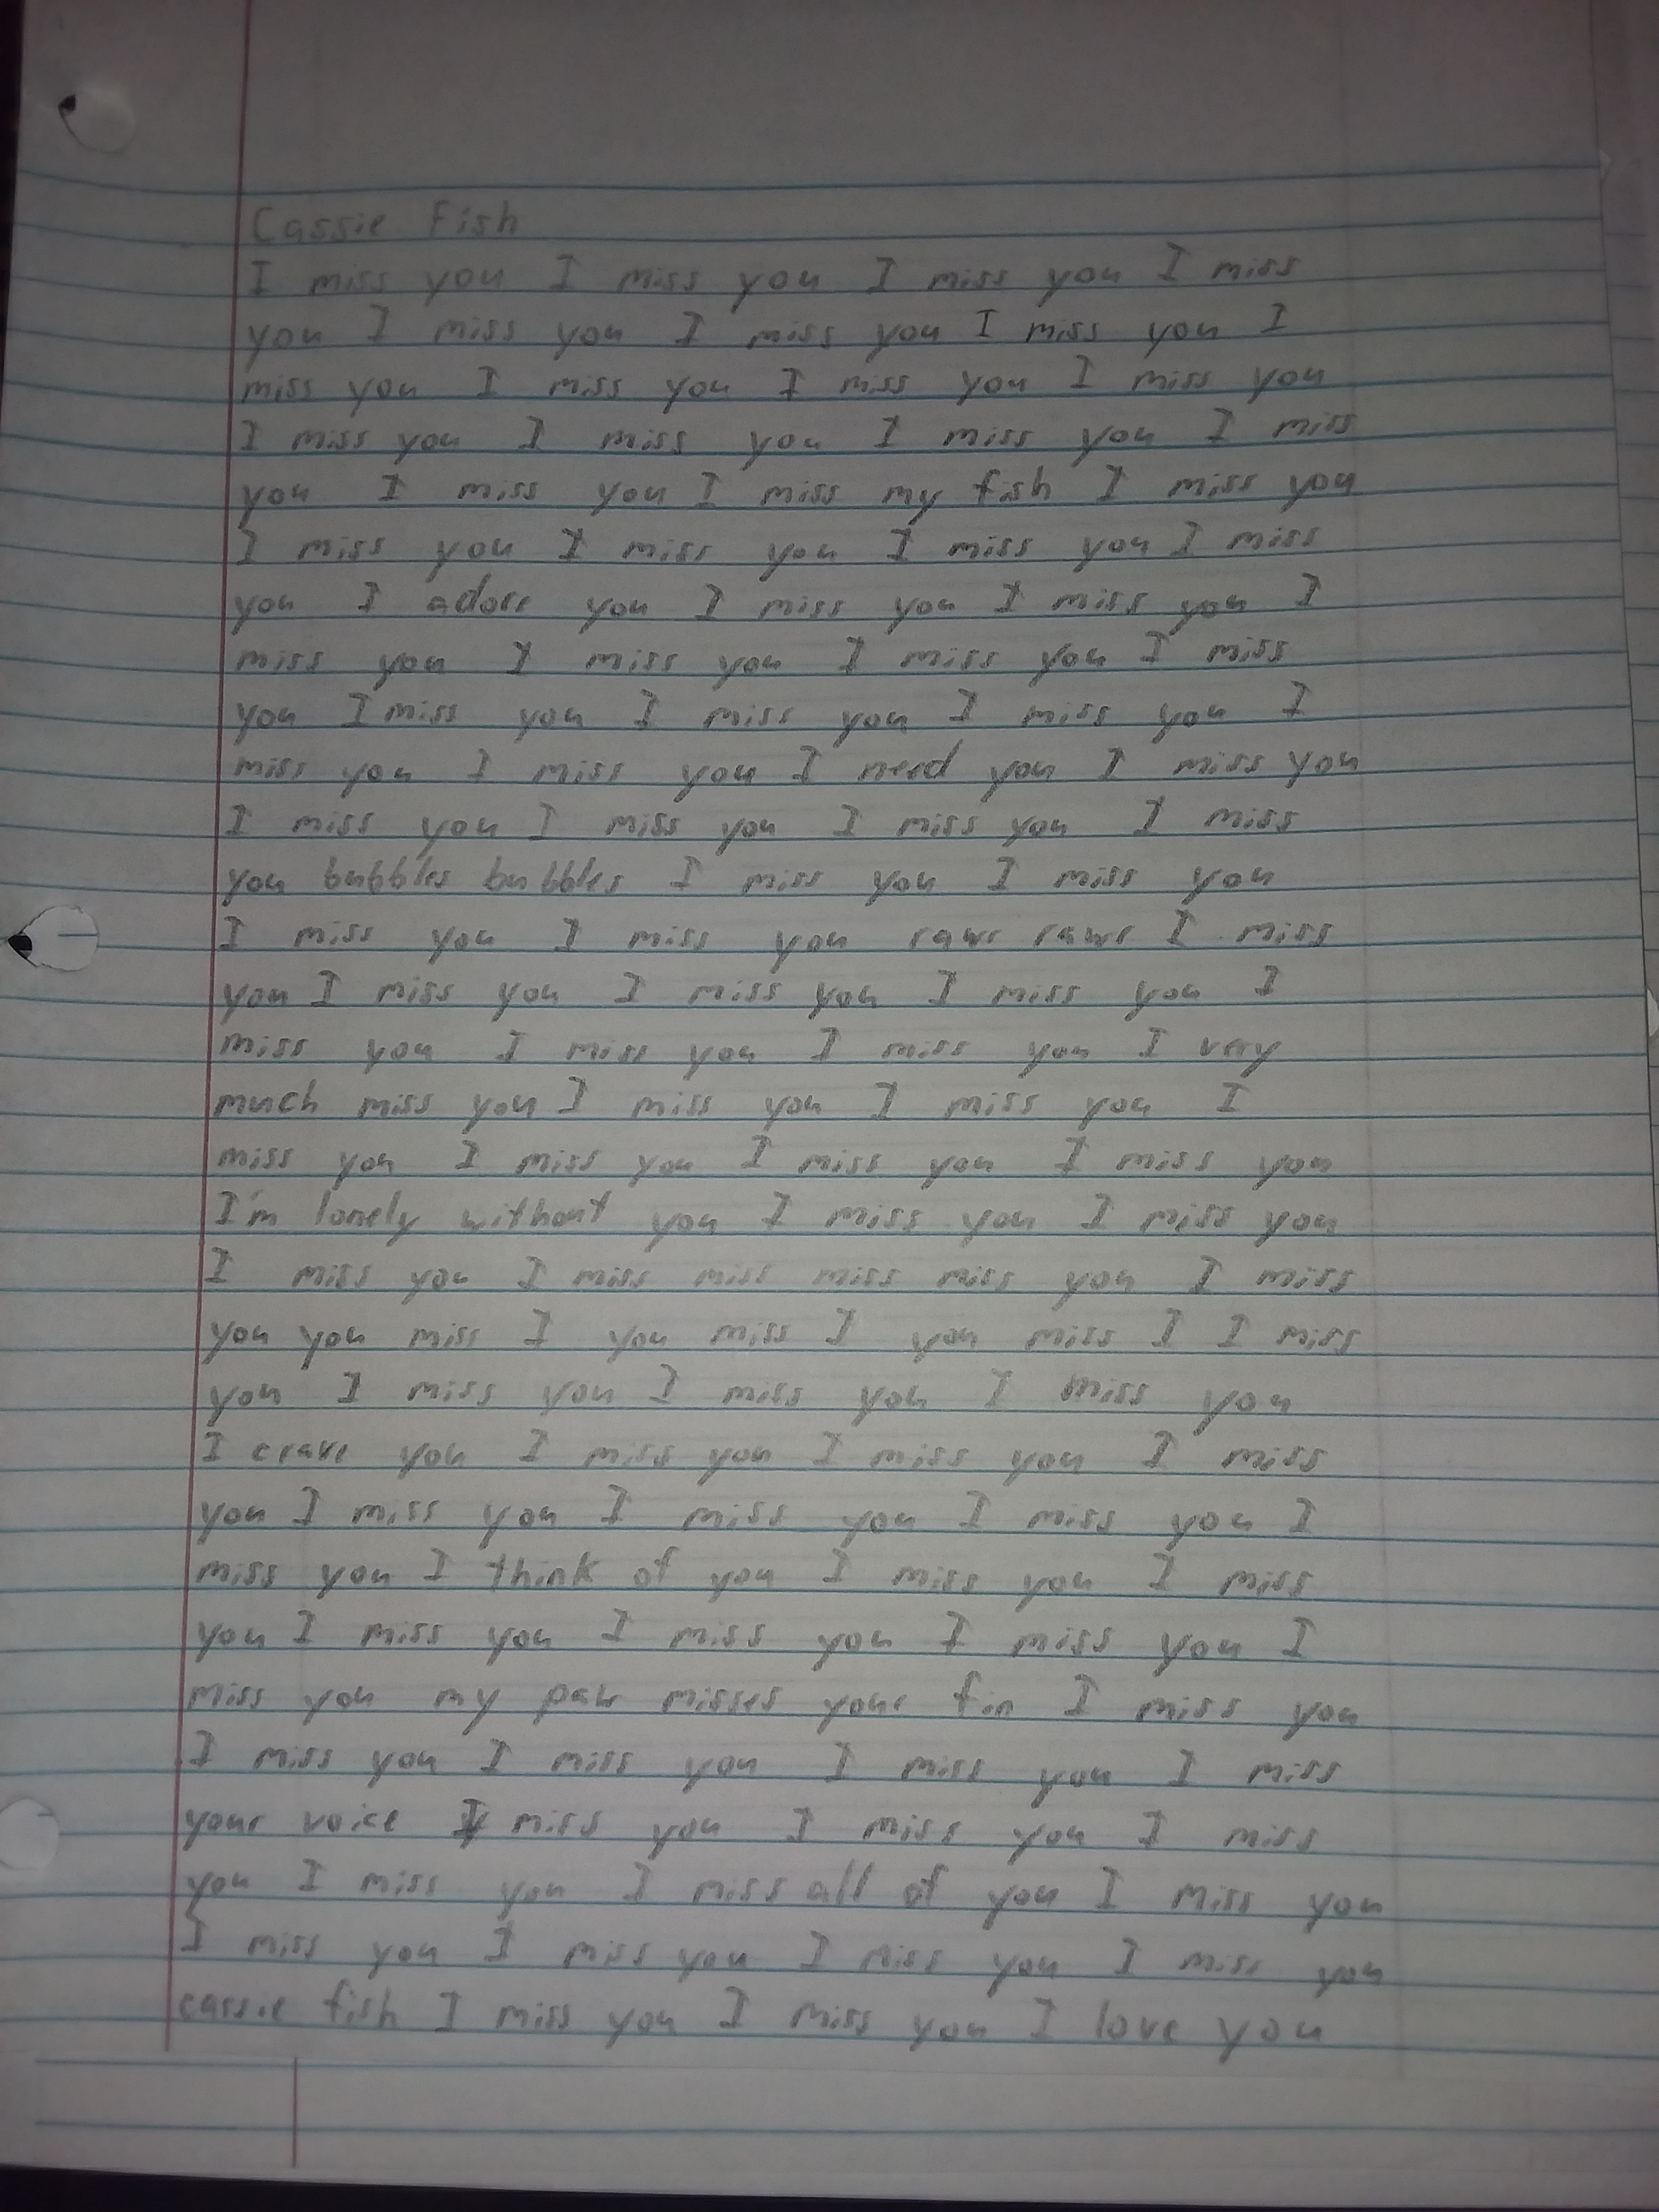 Cassie Fish
I miss you I miss you I miss you I miss
you I miss you I miss you I miss you I
miss you I miss you I miss you I miss you
I miss you I miss you I miss you I miss
you I miss you I miss my fish I miss you
I miss you I miss you I miss you I miss
you I adore you I miss you I miss you I
miss you I miss you I miss you I miss
you I miss you I miss you I miss you I
miss you I miss you I need you I miss you
I miss you I miss you I miss you I miss
you bubbles bubbles I miss you I miss you
I miss you I miss you rawr rawr I miss
you I miss you I miss you I miss you I
miss you I miss you I miss you I very
much miss you I miss you I miss you I
miss you I miss you I miss you I miss you
I'm lonely without you I miss you I miss you
I miss you I miss miss miss miss you I miss
you you miss I you miss I you miss I I miss
you I miss you I miss you I miss you
I crave you I miss you I miss you I miss
you I miss you I miss you I miss you I
miss you I think of you I miss you I miss
you I miss you I miss you I miss you I
miss you my paw misses your fin I miss you
I miss you I miss you I miss you I miss
your voice I miss you I miss you I miss
you I miss you I miss all of you I miss you
I miss you I miss you I miss you I miss you
cassie fish I miss you I miss you I love you